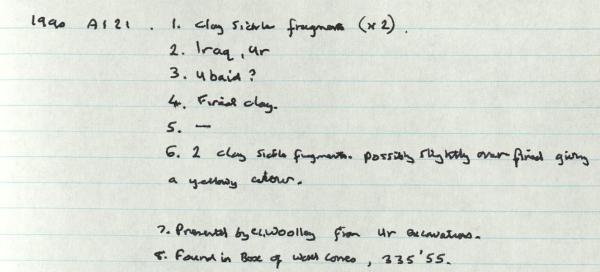 1990 A121. 1. clay sickle fragments (x2).
2. Iraq, Ur
3. Ubaid?
4. Fired clay.
5. —
6. 2 clay sickle fragments. possibly slightly over fired giving
a yellowy colour.
7. Presented by C.L.Woolley from Ur excavations.
8. Found in Box of Wall Cones, 335'55.